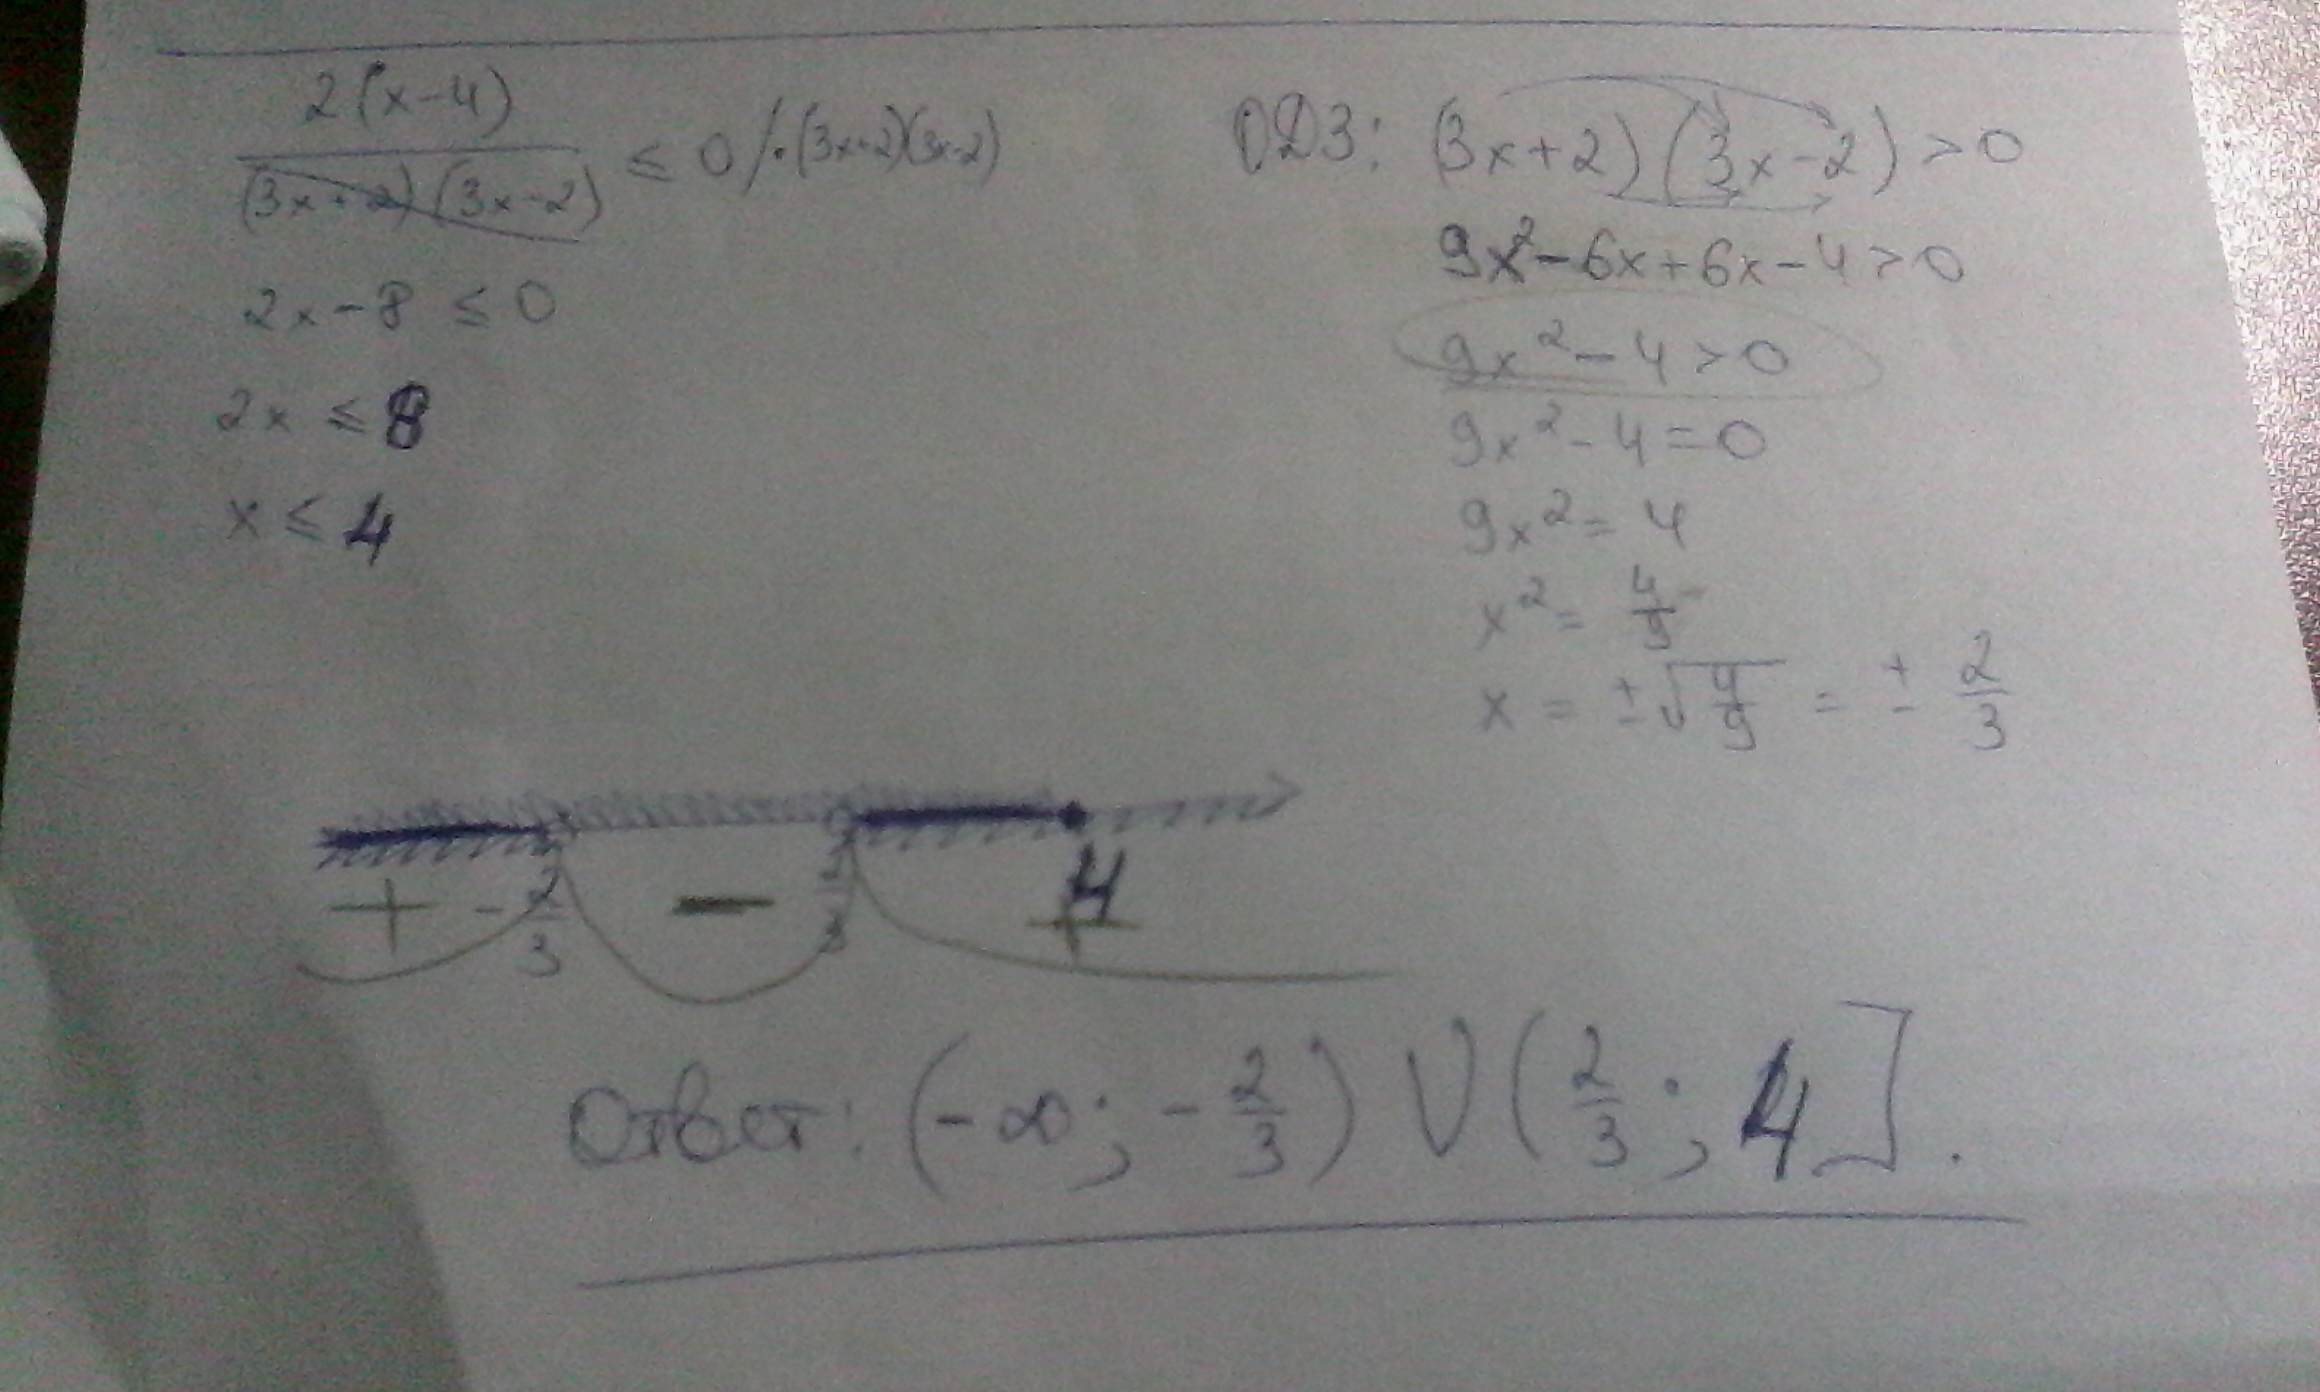 2(x-4)/((3x+2)(3x-2)) ≤ 0 /·(3x+2)(3x-2)
2x-8 ≤ 0
2x ≤ 8
x ≤ 4
ОДЗ: (3x+2)(3x-2)>0
9x²-6x+6x-4>0
9x²-4>0
9x²-4=0
9x²=4
x²=4/9
x=±√(4/9)=±2/3
-2/3 2/3 4
+ - +
Ответ: (-∞; -2/3) U (2/3; 4].